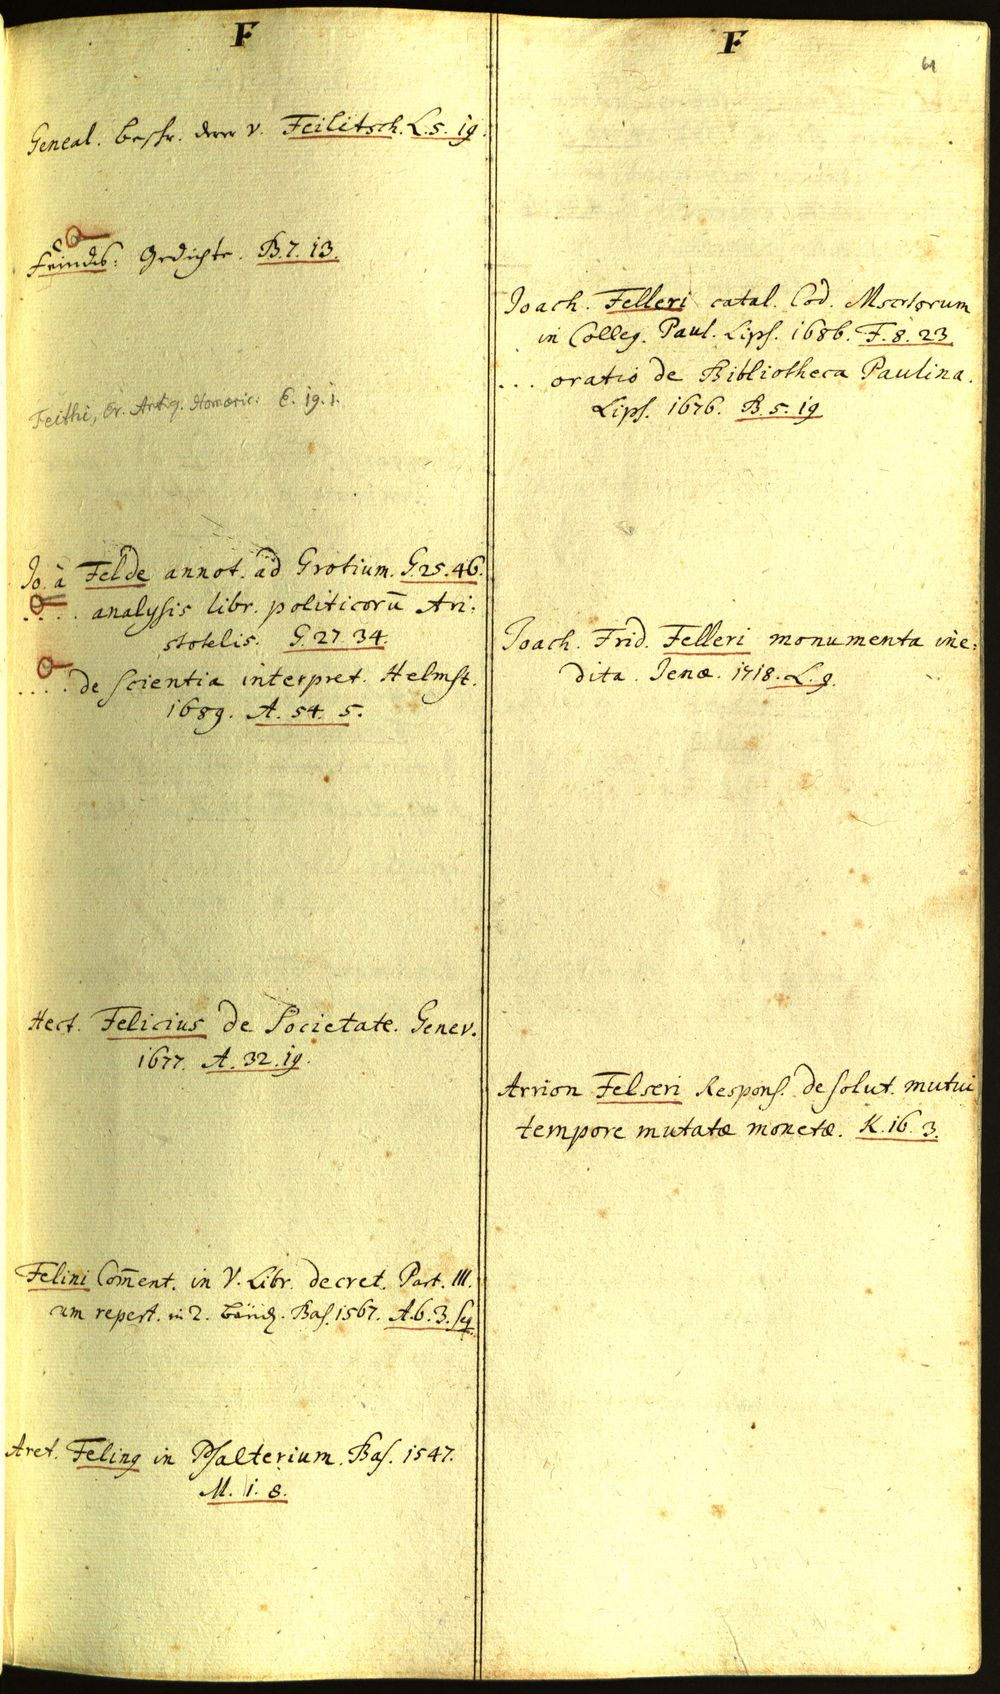 F
Geneal. beschr. derer v. Feilitsch. L. 5. 19.
Feindes: Gedichte. B. 7. 13.
Feithi, Ev. Antiq. Homeric: E. 19. 1.
Jo. à Felde annot. ad Grotium. G. 25. 46.
.... analysis libr. politicorū Ari:
stotelis. G. 27. 34.
.... de scientia interpret. Helmst.
1689. A. 54. 5.
Hect. Felicius de Societate. Genev.
1677. A. 32. 19.
Felini Com̄ent. in V. Libr. decret. Part. III.
cum repert. in 2. Bas. 1567. A. 6. 3. sq
Aret. Feling in Psalterium. Bas. 1547.
M. 1. 8.
F
61
Joach. Felleri catal. Cod. Mscrtorum
in Colleg. Paul. Lips. 1686. F. 8. 23.
... oratio de Bibliotheca Paulina.
Lips. 1676. B. 5. 19
Joach. Frid. Felleri monumenta ine:
dita. Jenæ. 1718. L. 9.
Arrion Felseri Respons. de solut. mutui
tempore mutatæ monetæ. K. 16. 3.